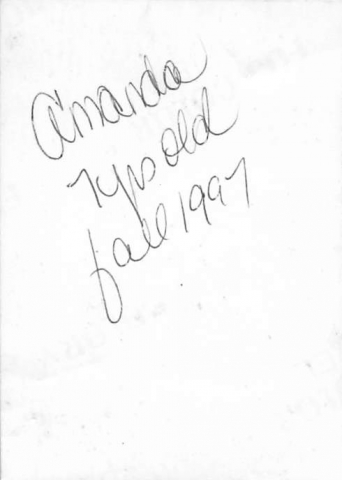 Amanda
7 yrs old
fall 1997